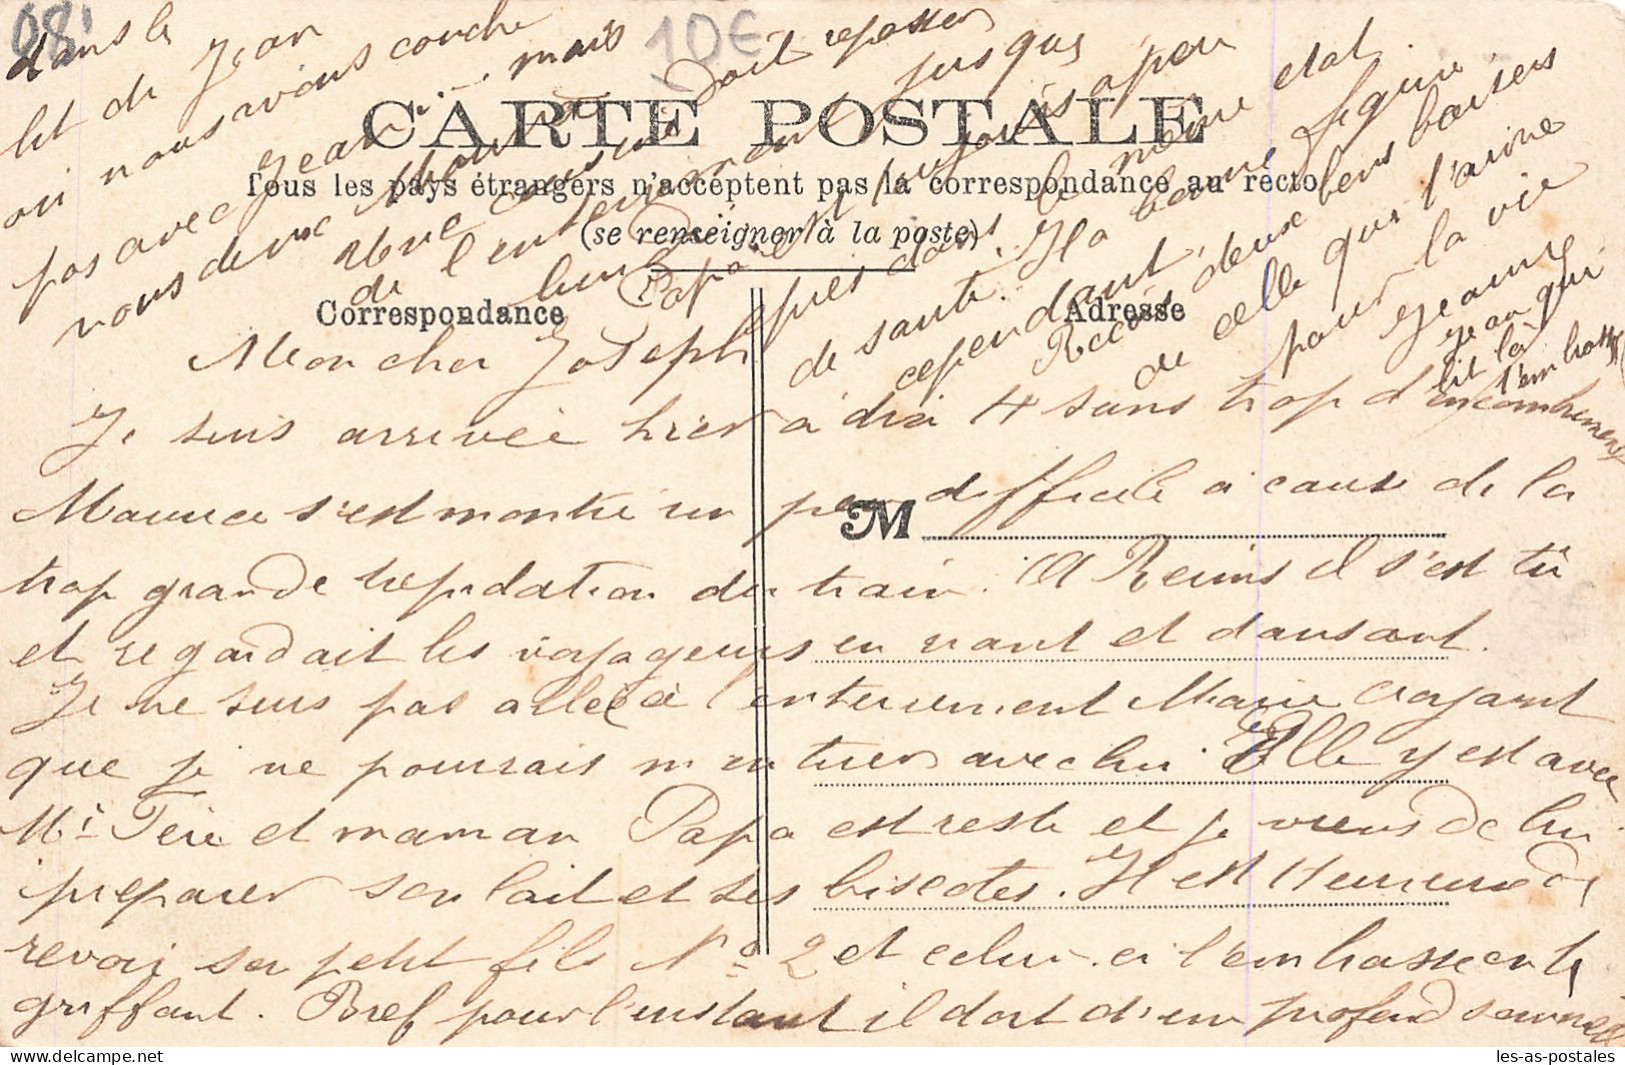 08
10€
CARTE POSTALE
Tous les pays étrangers n'acceptent pas la correspondance au recto
(se renseigner à la poste)
Correspondance
Adresse
M
Mon cher Joseph
Je suis arrivée hier à dix h sans trop d'encombrement
Maurice s'est montré un peu difficile à cause de la
trop grande trepidation du train. A Reims il s'est tû
et regardait les voyageurs en riant et dansant.
Je ne suis pas allée à l'enterrement Marie croyant
que je ne pourrais m'entrer avec lui Elle y est avec
Mr Père et maman Papa est resté et je viens de lui
préparer son lait et ses biscotes. Il est Heureux de
revoir son petit fils No 2 et celui-ci l'embrasse en le
griffant. Bref pour l'instant il dort d'un profond sommeil
dans le
lit de Jean
où nous avons couché
pas avec Jean mais
nous deux
doit repasser
de l'enterrement jusque
Papa est toujours à peu
près dans le même état
de santé. Il a bonne figure
cependant.
Reçois deux bons baisers
de celle qui t'aime
pour la vie
Jeanne
Jean qui
lit là
t'embrasse